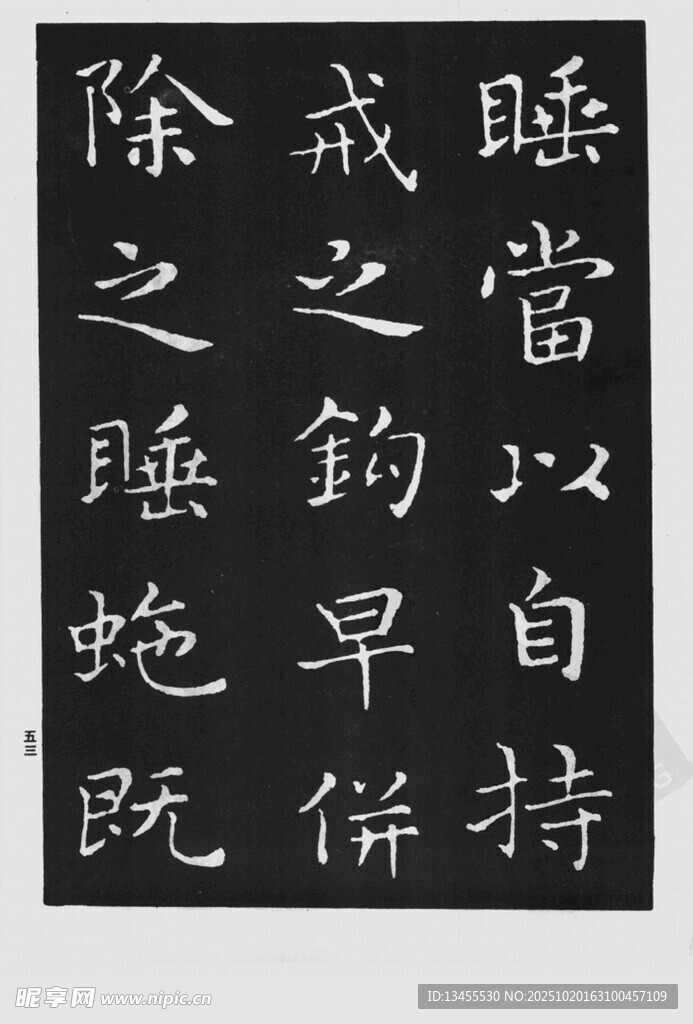 睡當以自持
戒之鈎早併
除之睡虵既
五三
昵享网 www.nipic.cn
ID:13455530 NO:20251020163100457109